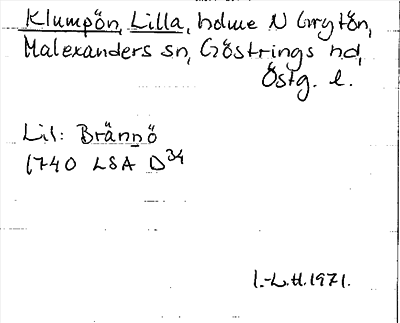 Klumpön, Lilla, holme N Grytön,
Malexanders sn, Göstrings hd,
Östg. l.
Lit: Brännö
1740 LSA D34
I.-L.H. 1971.